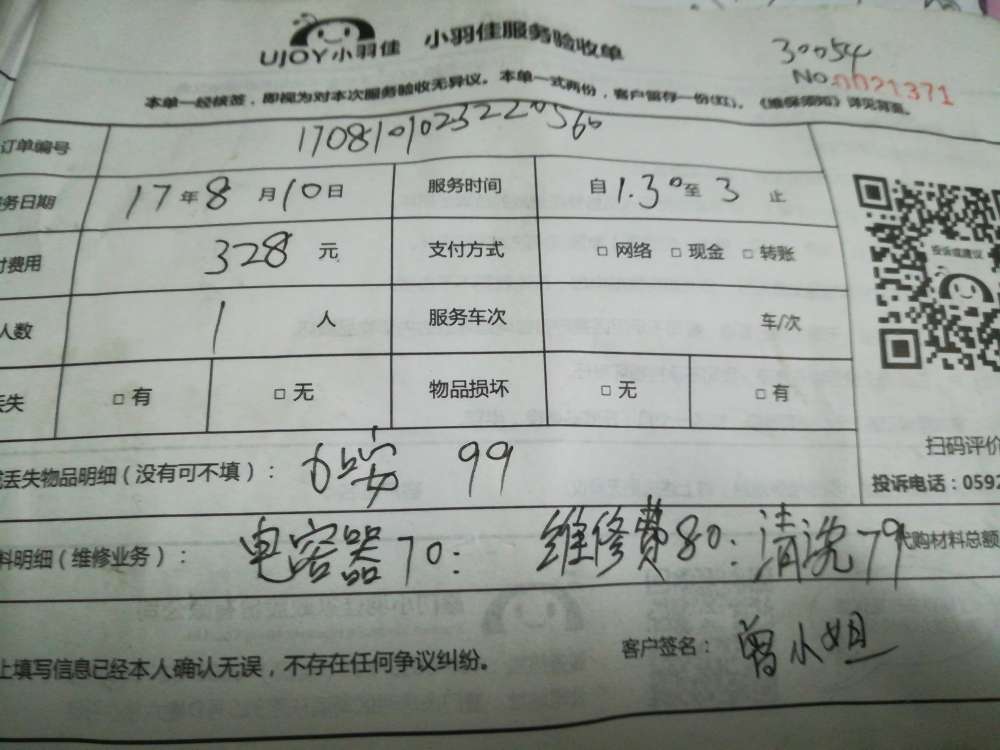 UJOY小羽佳 小羽佳服务验收单
30054
No.0021371
本单一经核签，即视为对本次服务验收无异议。本单一式两份，客户留存一份(红)。《维保须知》详见背面。
订单编号 17081010232220560
务日期 17年8月10日 服务时间 自1.30至3止
付费用 328元 支付方式 □网络 □现金 □转账
人数 1人 服务车次 车/次
丢失 □有 □无 物品损坏 □无 □有
投诉或建议
扫码评价
投诉电话：0592
丢失物品明细（没有可不填）： 安 99
料明细（维修业务）： 电容器70： 维修费80：清洗79 代购材料总额
上填写信息已经本人确认无误，不存在任何争议纠纷。
客户签名：曾小姐